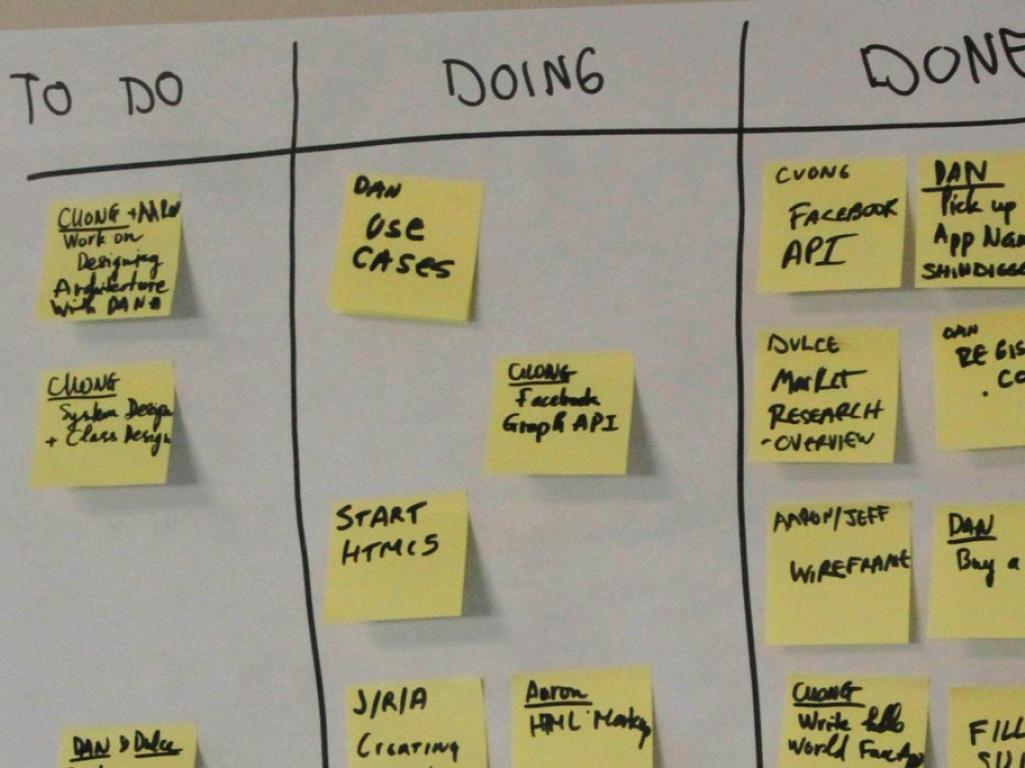 TO DO
DOING
DONE
CUONG + AARON
Work on
Designing
Architecture
With DAN
CUONG
System Design
+ Class Design
DAN & Dulce
DAN
USE
CASES
CUONG
Facebook
Graph API
START
HTML5
J/R/A
Creating
Aaron
HTML Markup
CUONG
FACEBOOK
API
DAN
Pick up
App Nam
SHINDIGGE
DULCE
MARKET
RESEARCH
-OVERVIEW
DAN
REGIS
. CO
AARON/JEFF
WIREFRAME
DAN
Buy a
CUONG
Write hello
World FaceApp
FILL